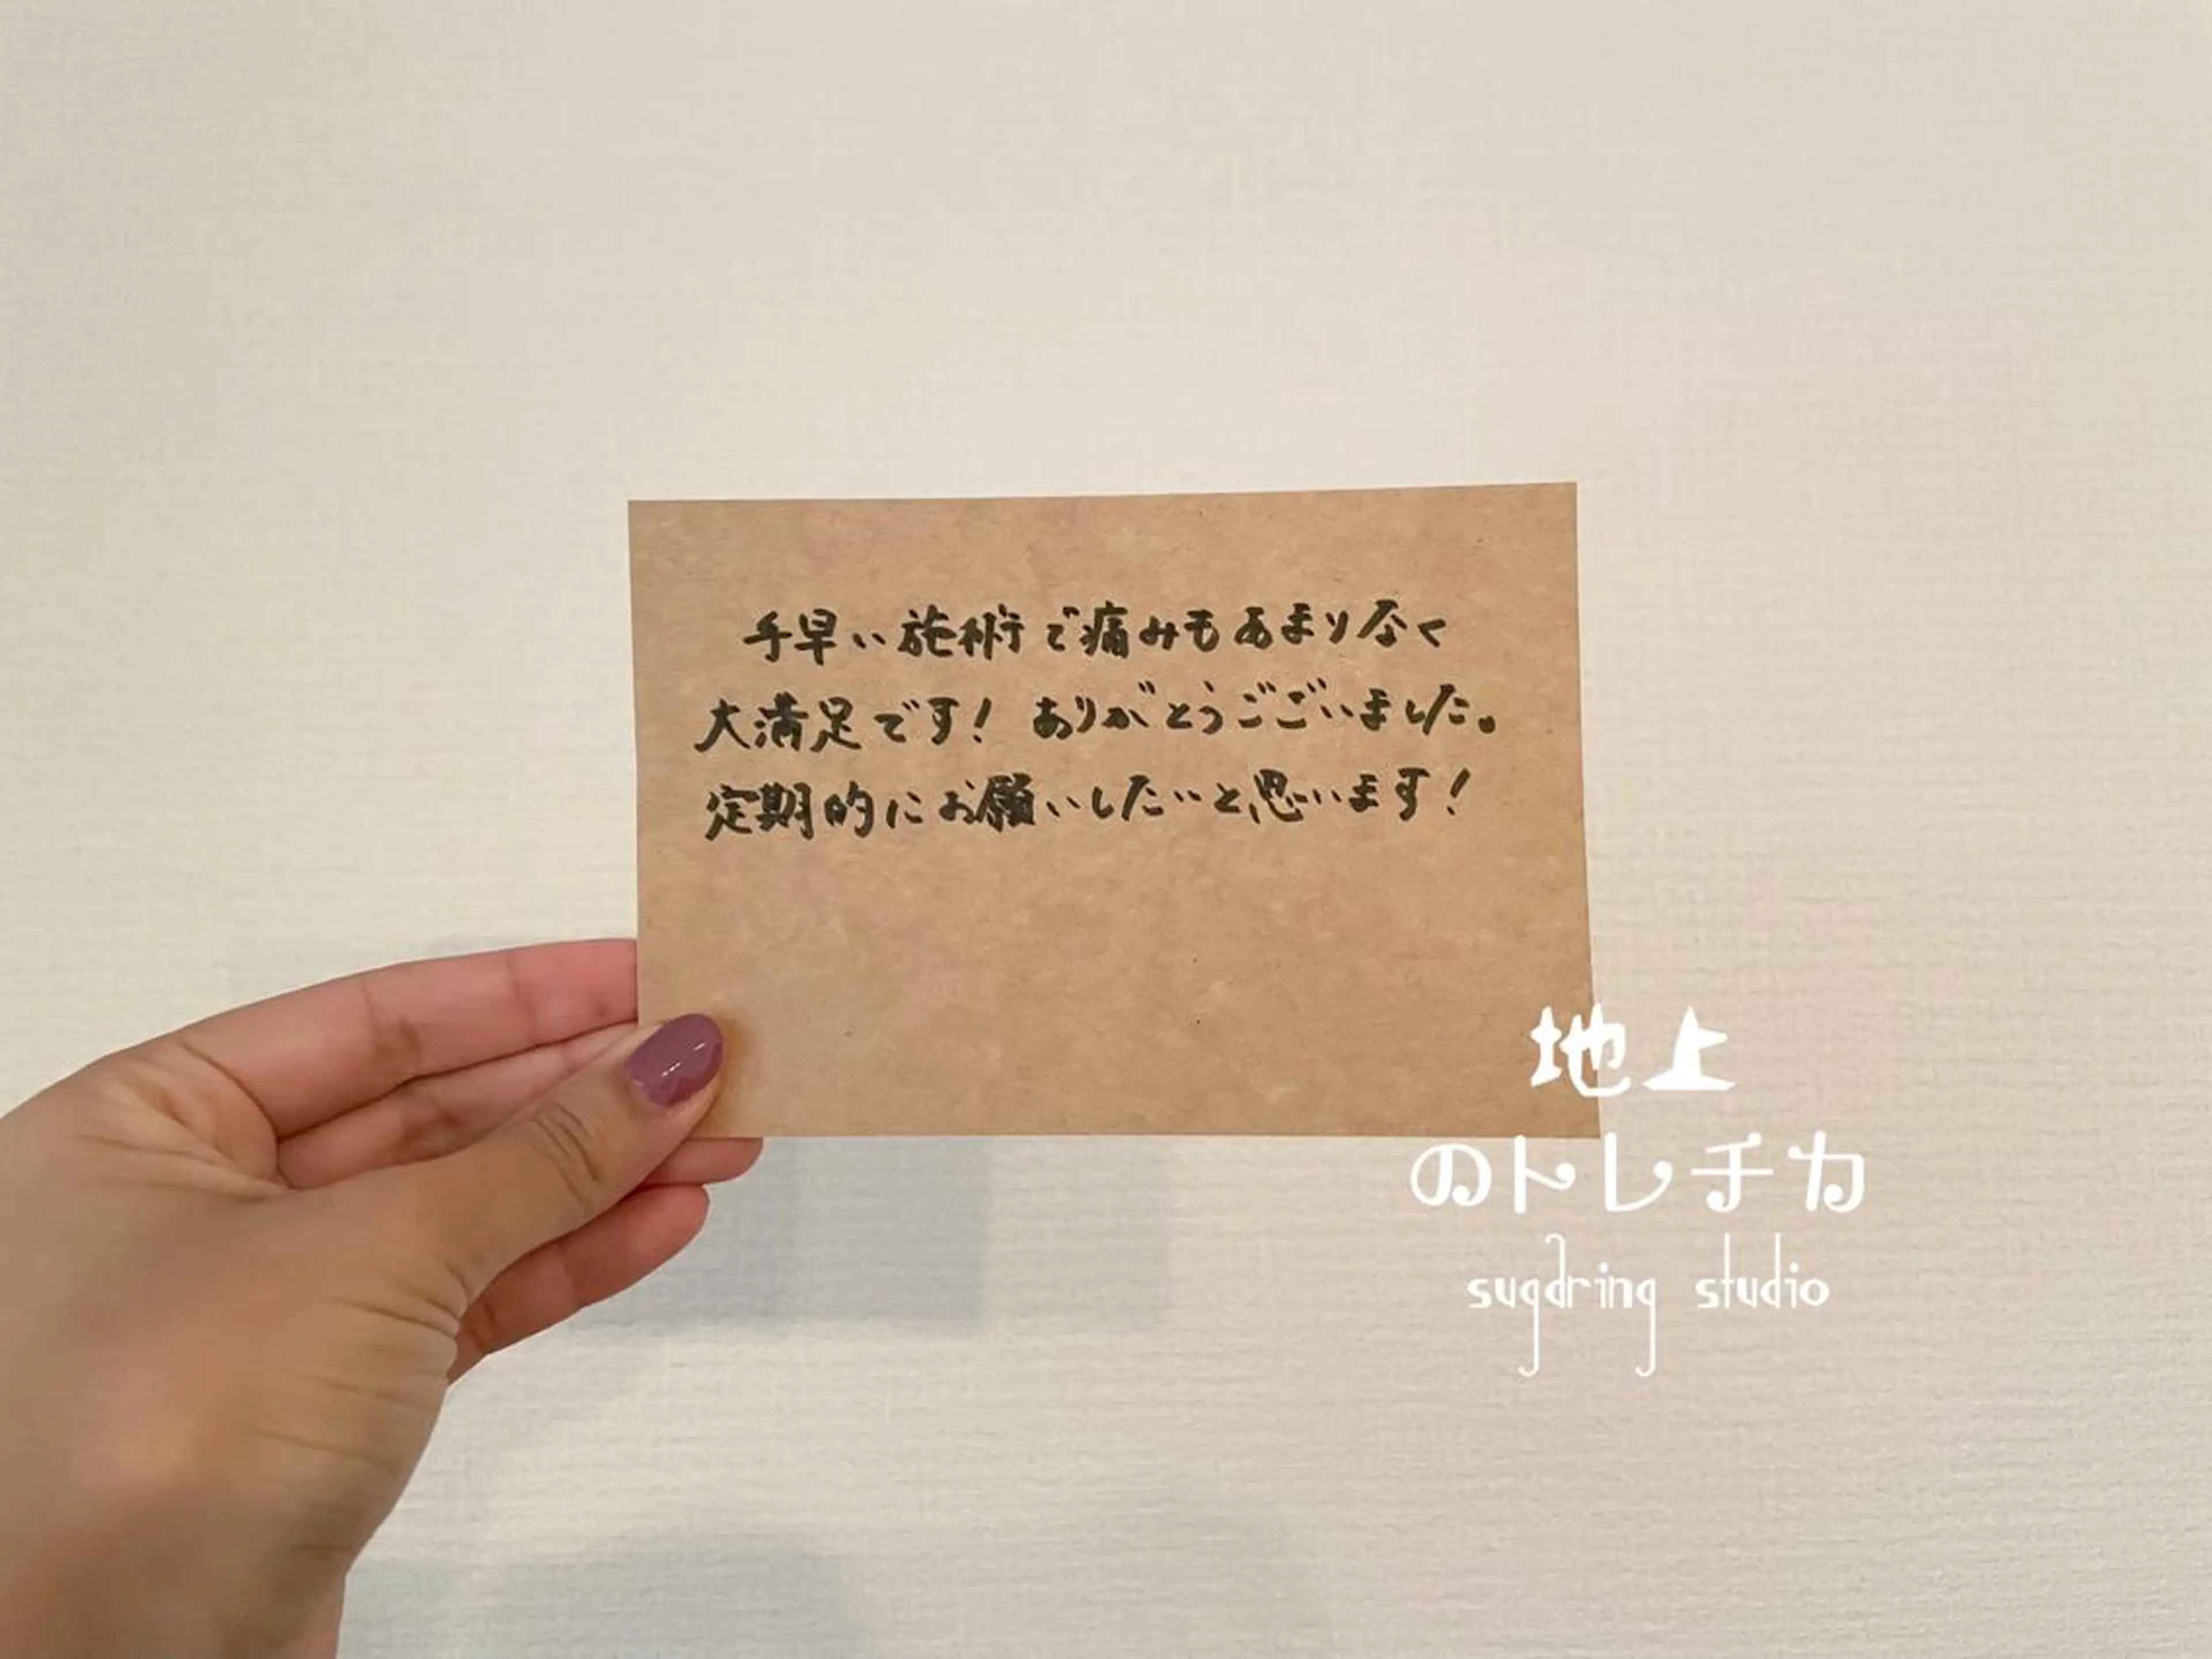 手早い施術で痛みもあまりなく
大満足です! ありがとうございました。
定期的にお願いしたいと思います!
地上
のトレチカ
sugdring studio